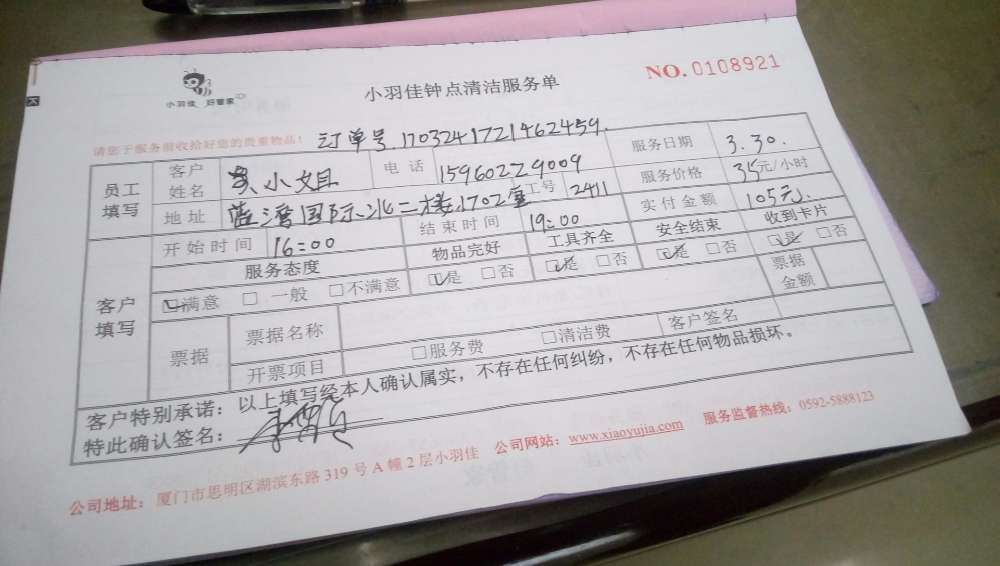 小羽佳 好管家
小羽佳钟点清洁服务单
NO. 0108921
请您于服务前收拾好您的贵重物品！
订单号 1703241721462459.
员工填写
客户姓名 吴小姐 电话 15960229009 服务日期 3.30.
地址 蓝湾国际 北二楼1702室 工号 2411 服务价格 35元/小时
开始时间 16:00 结束时间 19:00 实付金额 105元
客户填写
服务态度 物品完好 工具齐全 安全结束 收到卡片
☑满意 □一般 □不满意 ☑是 □否 ☑是 □否 ☑是 □否 ☑是 □否
票据 票据名称 票据金额
开票项目 □服务费 □清洁费 客户签名
客户特别承诺：以上填写经本人确认属实，不存在任何纠纷，不存在任何物品损坏。
特此确认签名：
公司地址：厦门市思明区湖滨东路 319 号 A 幢 2 层小羽佳 公司网站：www.xiaoyujia.com 服务监督热线：0592-5888123